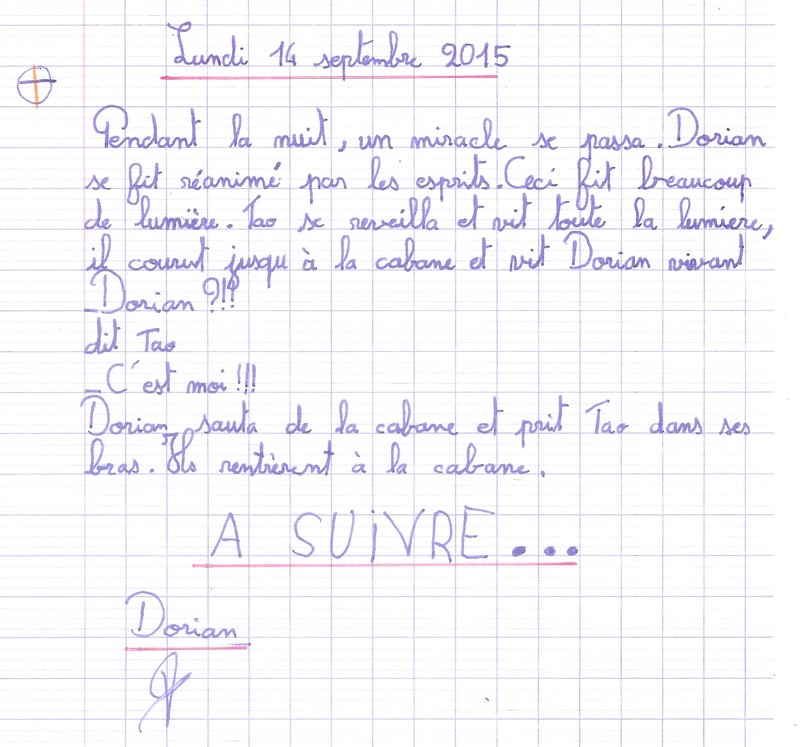 Lundi 14 septembre 2015
Pendant la nuit, un miracle se passa. Dorian
se fit réanimé par les esprits. Ceci fit beaucoup
de lumière. Tao se reveilla et vit toute la lumiere,
il courut jusqu à la cabane et vit Dorian vivant
_Dorian ?!!?
dit Tao
_C'est moi !!!
Dorian sauta de la cabane et prit Tao dans ses
bras. Ils rentrèrent à la cabane.
A SUiVRE...
Dorian